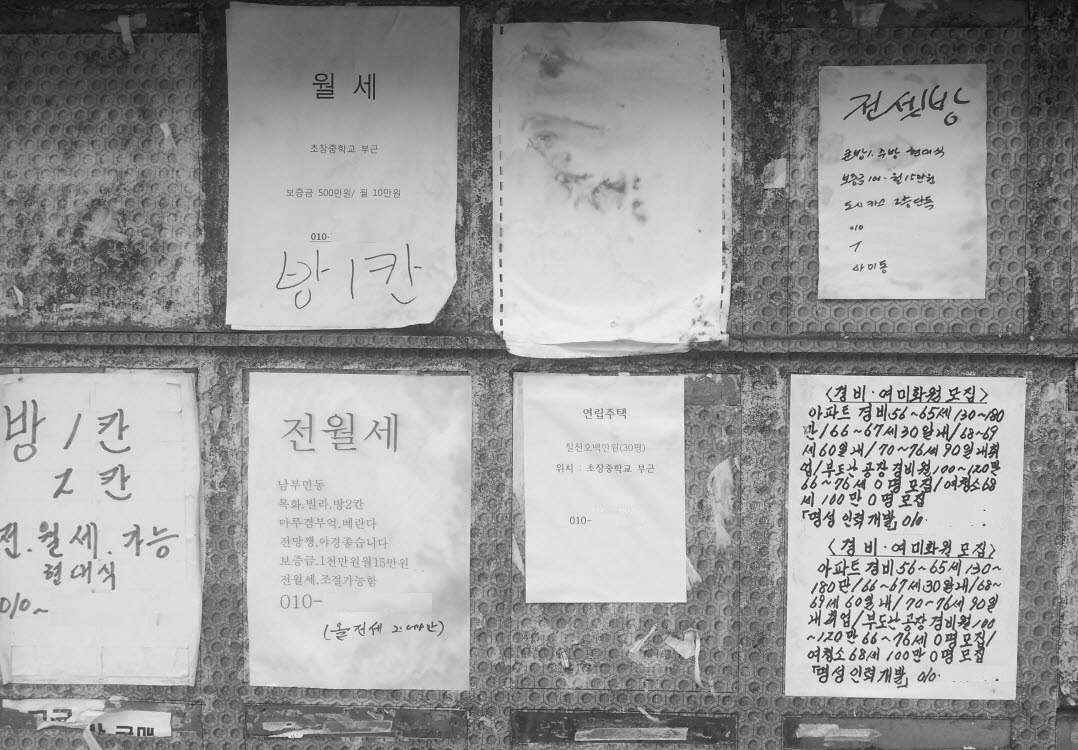 월 세
초장중학교 부근
보증금 500만원/ 월 10만원
010-
방 1 칸
전셋방
큰방1. 주방 현대식
보증금 100 - 월 15만원
도시가스 2층단독
010
아미동
방 1 칸
2 칸
전.월세.가능
현대식
010~
전월세
남부민동
목화.빌라.방2칸
마루겸부엌.베란다
전망짱,야경좋습니다
보증금.1천만원월15만원
전월세.조절가능함
010-
(올전세 2.000만)
연립주택
칠천오백만원(30평)
위치 : 초장중학교 부근
010-
<경비·여미화원 모집>
아파트 경비 56~65세/130~180
만/66~67세 30월내/68~69
세 60월내/70~76세 90월내취
업/부도난 공장 경비원/100~120만
66~76세 0명 모집/여청소 68
세 100만 0명 모집
「명성 인력개발」 010·
<경비·여미화원 모집>
아파트 경비 56~65세/130~
180만/66~67세 30월내/68~
69세 60월내/70~76세 90월
내취업/부도난 공장 경비원/100
~120만 66~76세 0명 모집/
여청소 68세 100만 0명 모집
「명성 인력개발」 010·